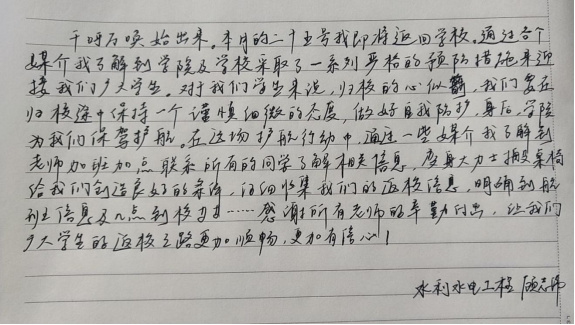 千呼万唤始出来。本月的二十五号我即将返回学校。通过各个
媒介我了解到学院及学校采取了一系列严格的预防措施来迎
接我们广大学生，对于我们学生来说，归校的心似箭，我们要在
归校途中保持一个谨慎细微的态度，做好自我防护，身后，学院
为我们保驾护航。在这场护航行动中，通过一些媒介我了解到
老师加班加点联系所有的同学了解相关信息，变身大力士搬桌椅
给我们创造良好的，仔细收集我们的返校信息，明确到航
班信息及几点到校……感谢所有老师的辛勤付出，让我们
广大学生的返校之路更加顺畅，更加有信心！
水利水电工程